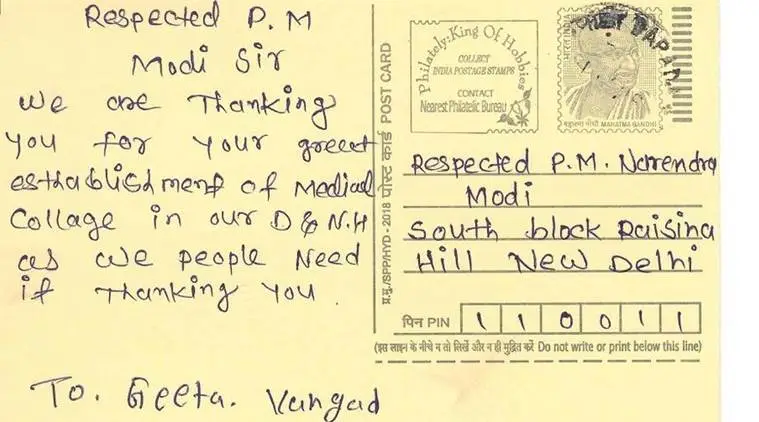 Respected P.M
Modi Sir
We are Thanking
you for your greeat
establishment of Medical
Collage in our D & N.H
as we people Need
if Thanking you.
To. Geeta. Vangad
प्र.मु./SPP/HYD - 2018 पोस्ट कार्ड POST CARD
Philately: King Of Hobbies
COLLECT
INDIA POSTAGE STAMPS
CONTACT
Nearest Philatelic Bureau
भारत INDIA
महात्मा गाँधी MAHATMA GANDHI
Respected P.M. Narendra
Modi
South block Raisina
Hill New Delhi
पिन PIN 1 1 0 0 1 1
(इस लाइन के नीचे न तो लिखें और न ही मुद्रित करें Do not write or print below this line)